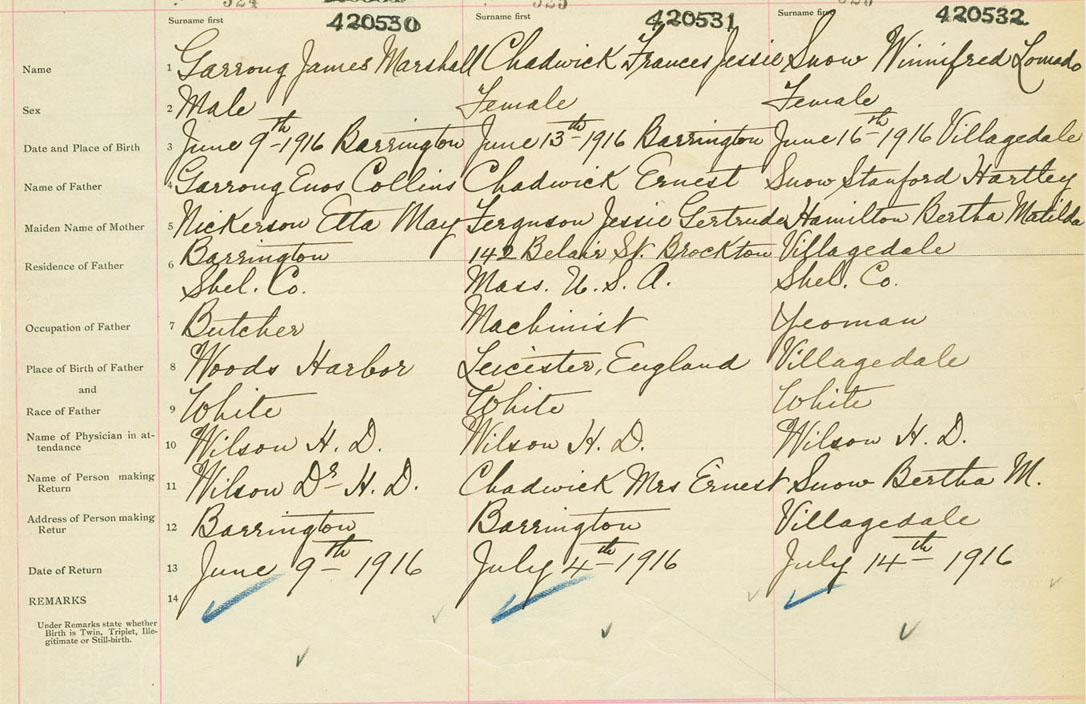 324 325 326
Surname first 420530 Surname first 420531 Surname first 420532
Name 1 Garrong James Marshall Chadwick Frances Jessie Snow Winnifred Lomado
Sex 2 Male Female Female
Date and Place of Birth 3 June 9th 1916 Barrington June 13th 1916 Barrington June 16th 1916 Villagedale
Name of Father 4 Garrong Enos Collins Chadwick Ernest Snow Stanford Hartley
Maiden Name of Mother 5 Nickerson Etta May Ferguson Jessie Gertrude Hamilton Bertha Matilda
Residence of Father 6 Barrington 142 Belair St. Brockton Villagedale
Shel. Co. Mass. U. S. A. Shel. Co.
Occupation of Father 7 Butcher Machinist Yeoman
Place of Birth of Father 8 Woods Harbor Leicester, England Villagedale
and
Race of Father 9 White White White
Name of Physician in at-
tendance 10 Wilson H. D. Wilson H. D. Wilson H. D.
Name of Person making
Return 11 Wilson Dr H. D. Chadwick Mrs Ernest Snow Bertha M.
Address of Person making
Retur 12 Barrington Barrington Villagedale
Date of Return 13 June 9th 1916 July 4th 1916 July 14th 1916
REMARKS 14
Under Remarks state whether
Birth is Twin, Triplet, Ille-
gitimate or Still-birth.